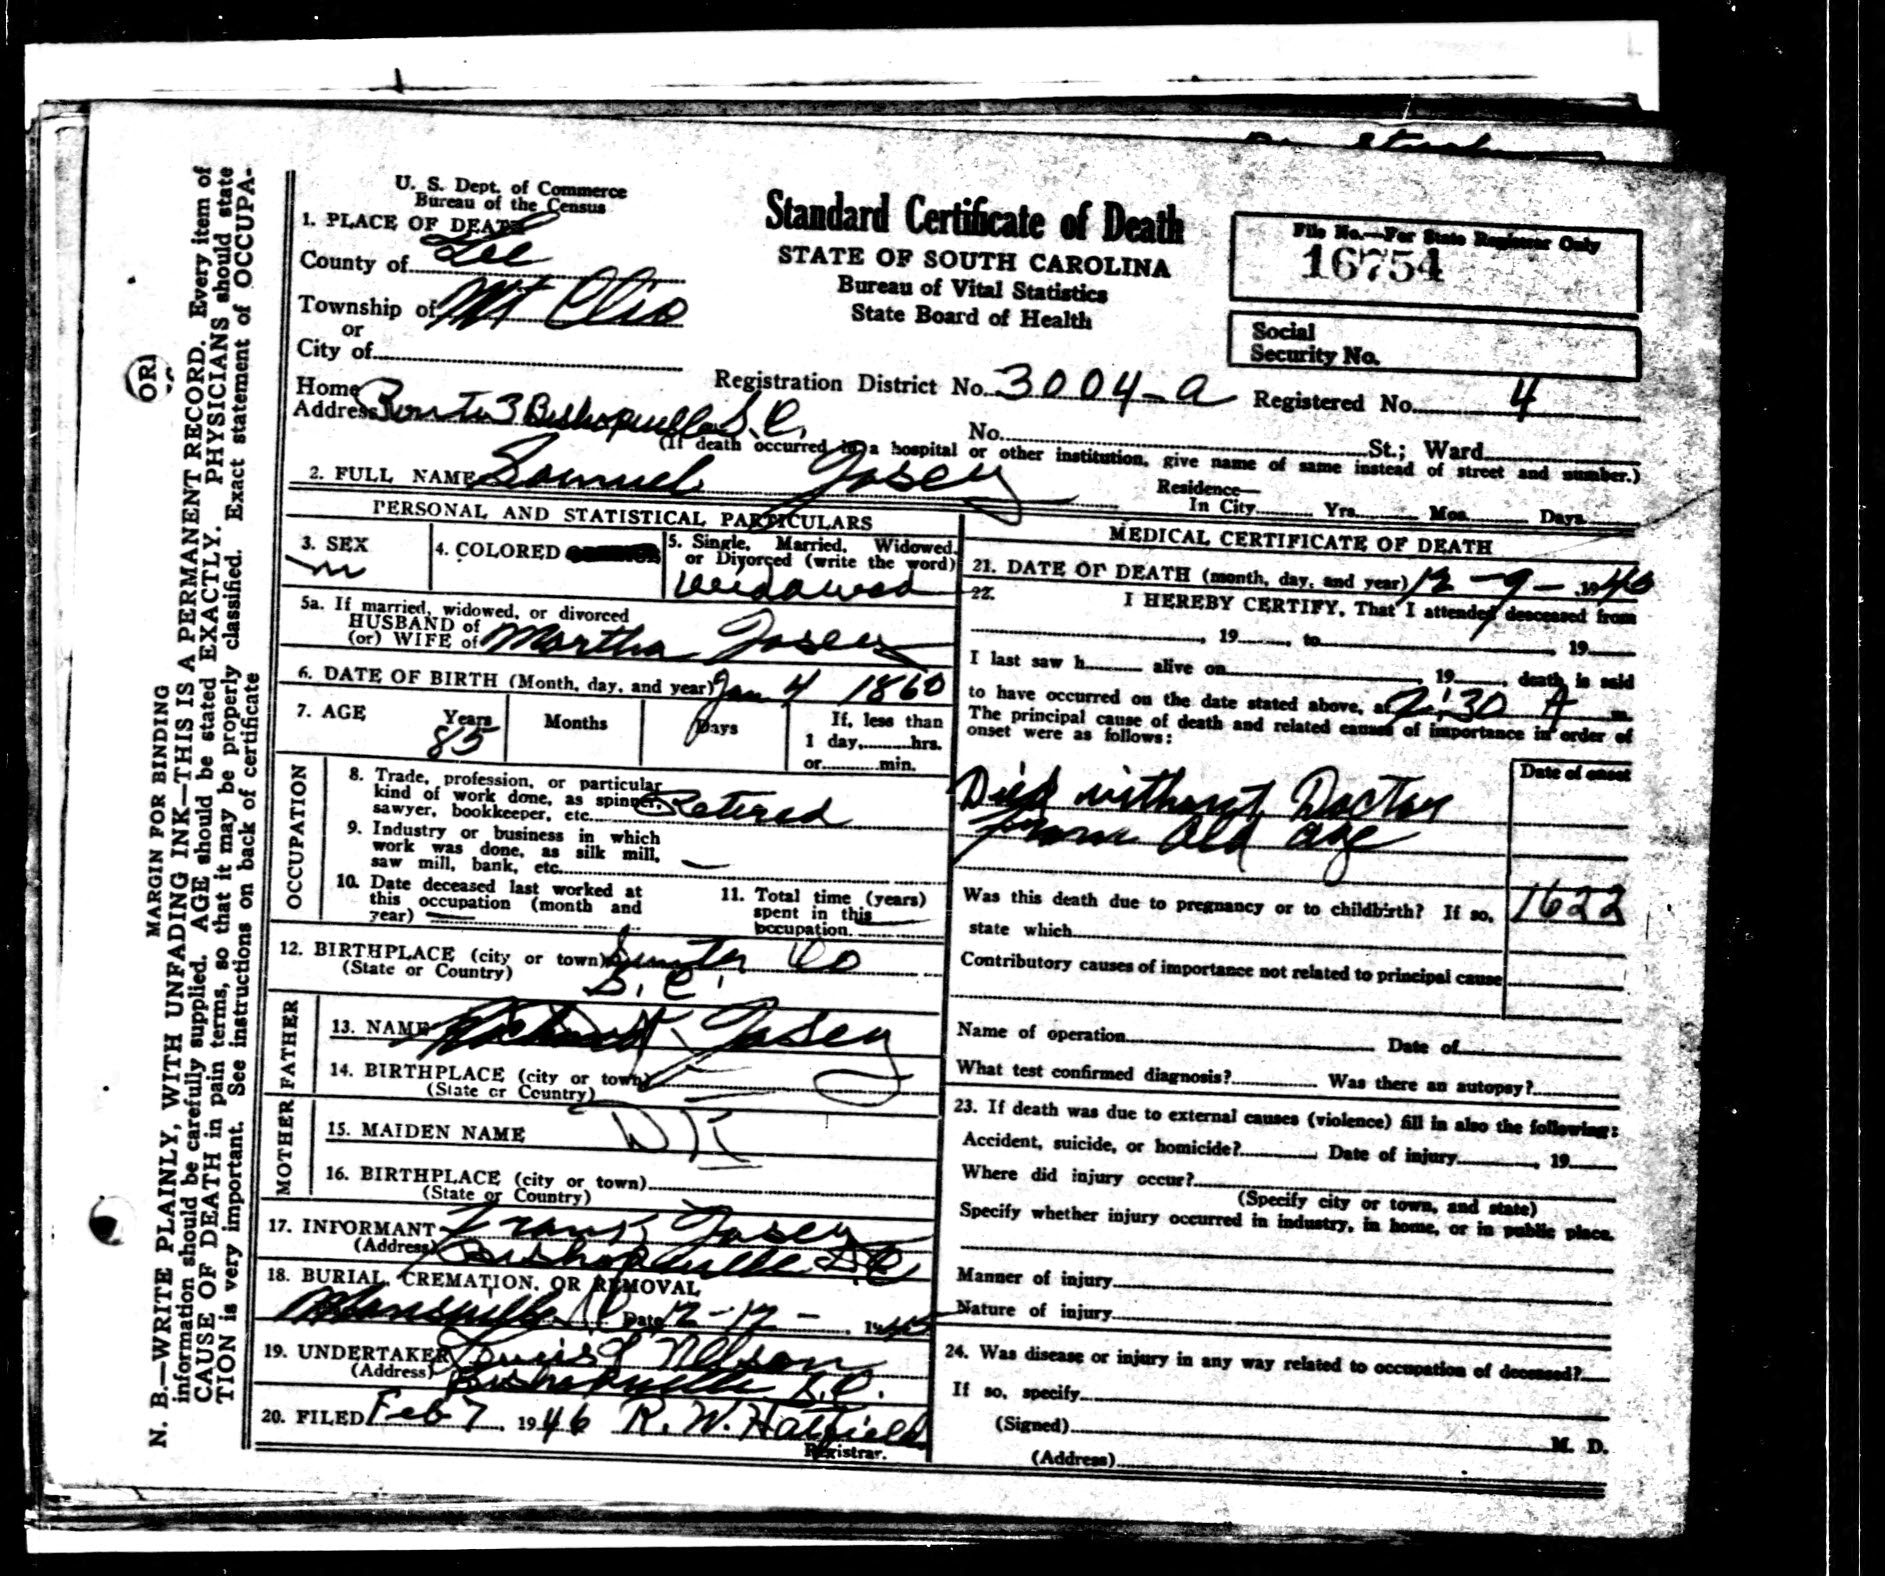 U. S. Dept. of Commerce
Bureau of the Census
Standard Certificate of Death
STATE OF SOUTH CAROLINA
Bureau of Vital Statistics
State Board of Health
File No.—For State Registrar Only
16754
Social
Security No.
1. PLACE OF DEATH
County of Lee
Township of Mt Clio
or
City of
Registration District No. 3004-a Registered No. 4
Home
Address Route 3 Bishopville S. C.
No. St.; Ward
(If death occurred in a hospital or other institution, give name of same instead of street and number.)
2. FULL NAME Samuel Josey
Residence—
In City Yrs. Mos. Days
PERSONAL AND STATISTICAL PARTICULARS
3. SEX
m
4. COLORED
5. Single, Married, Widowed,
or Divorced (write the word)
Widowed
5a. If married, widowed, or divorced
HUSBAND of
(or) WIFE of Martha Josey
6. DATE OF BIRTH (Month, day, and year) Jan 4 1860
7. AGE Years Months Days If, less than
85 1 day, hrs.
or min.
OCCUPATION
8. Trade, profession, or particular
kind of work done, as spinner,
sawyer, bookkeeper, etc. Retired
9. Industry or business in which
work was done, as silk mill,
saw mill, bank, etc.
10. Date deceased last worked at
this occupation (month and
year)
11. Total time (years)
spent in this
occupation
12. BIRTHPLACE (city or town) Sumter Co
(State or Country) S. C.
FATHER
13. NAME Josey
14. BIRTHPLACE (city or town)
(State or Country)
MOTHER
15. MAIDEN NAME DK
16. BIRTHPLACE (city or town)
(State or Country)
17. INFORMANT Frank Josey
(Address) Bishopville S.C
18. BURIAL, CREMATION, OR REMOVAL
Manville Date 12-12-, 1945
19. UNDERTAKER Nelson
(Address) Bishopville S.C.
20. FILED Feb 7, 1946 R. W. Hatfield
Registrar.
MEDICAL CERTIFICATE OF DEATH
21. DATE OF DEATH (month, day, and year) 12-9-, 19
22. I HEREBY CERTIFY, That I attended deceased from
, 19 , to , 19
I last saw h alive on , 19 , death is said
to have occurred on the date stated above, at 2:30 A m.
The principal cause of death and related causes of importance in order of
onset were as follows:
Date of onset
Died without Doctor
from old age
Was this death due to pregnancy or to childbirth? If so, 1622
state which
Contributory causes of importance not related to principal cause
Name of operation Date of
What test confirmed diagnosis? Was there an autopsy?
23. If death was due to external causes (violence) fill in also the following:
Accident, suicide, or homicide? Date of injury , 19
Where did injury occur?
(Specify city or town, and state)
Specify whether injury occurred in industry, in home, or in public place.
Manner of injury
Nature of injury
24. Was disease or injury in any way related to occupation of deceased?
If so, specify
(Signed) M. D.
(Address)
MARGIN FOR BINDING
N. B.—WRITE PLAINLY, WITH UNFADING INK—THIS IS A PERMANENT RECORD. Every item of
information should be carefully supplied. AGE should be stated EXACTLY. PHYSICIANS should state
CAUSE OF DEATH in pain terms, so that it may be properly classified. Exact statement of OCCUPA-
TION is very important. See instructions on back of certificate